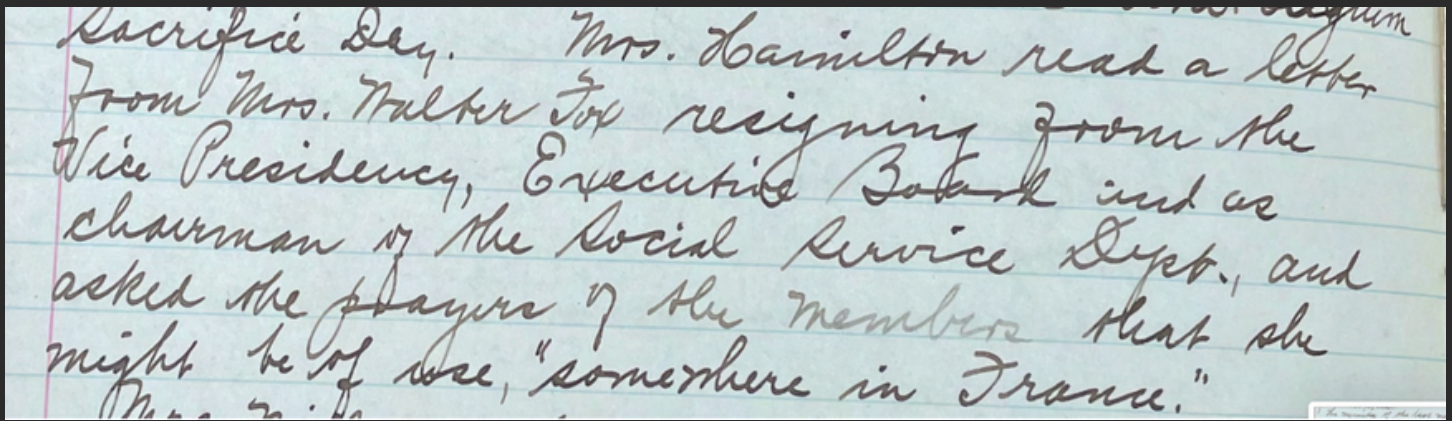 Sacrifice Day. Mrs. Hamilton read a letter
from Mrs. Walter Fox resigning from the
Vice Presidency, Executive Board and as
chairman of the Social Service Dept., and
asked the prayers of the members that she
might be of use, "somewhere in France."
Mrs.